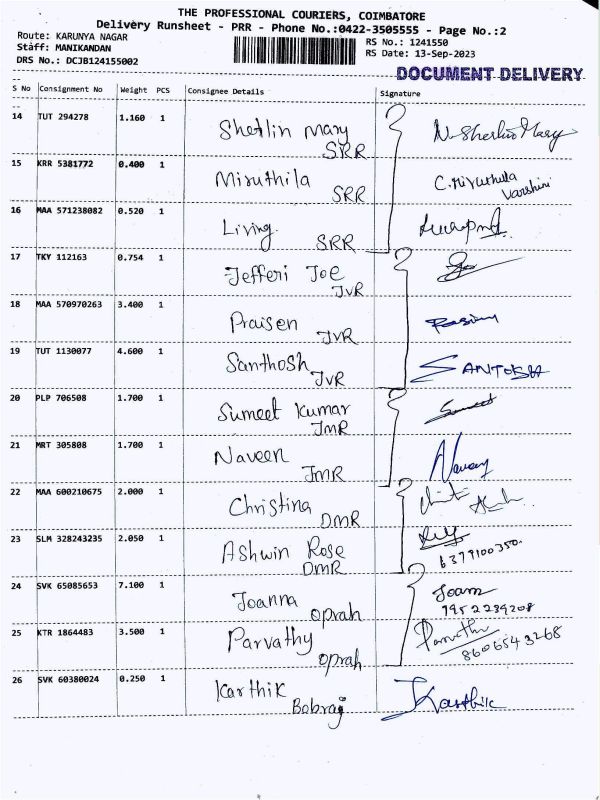 THE PROFESSIONAL COURIERS, COIMBATORE
Delivery Runsheet - PRR - Phone No.:0422-3505555 - Page No.:2
Route: KARUNYA NAGAR
RS No.: 1241550
Staff: MANIKANDAN
RS Date: 13-Sep-2023
DRS No.: DCJB124155002
DOCUMENT DELIVERY
S No Consignment No Weight PCS Consignee Details Signature
14 TUT 294278 1.160 1 Sherlin Mary N. Sherlin Mary
SRR
15 KRR 5381772 0.400 1 Miruthila C. Miruthula
SRR Varshini
16 MAA 571238082 0.520 1 Living
SRR
17 TKY 112163 0.754 1 Jefferi Joe
JVR
18 MAA 570970263 3.400 1 Praisen
JVR
19 TUT 1130077 4.600 1 Santhosh SANTOSH
JVR
20 PLP 706508 1.700 1 Sumeet Kumar Sumeet
JMR
21 MRT 305808 1.700 1 Naveen Naveen
JMR
22 MAA 600210675 2.000 1 Christina
DMR
23 SLM 328243235 2.050 1 Ashwin Rose
DMR 6379100350.
24 SVK 65085653 7.100 1 Joanna Joann
Oprah 7952239208
25 KTR 1864483 3.500 1 Parvathy Parvathy
Oprah 8606543268
26 SVK 60380024 0.250 1 Karthik Karthik
Bobraj